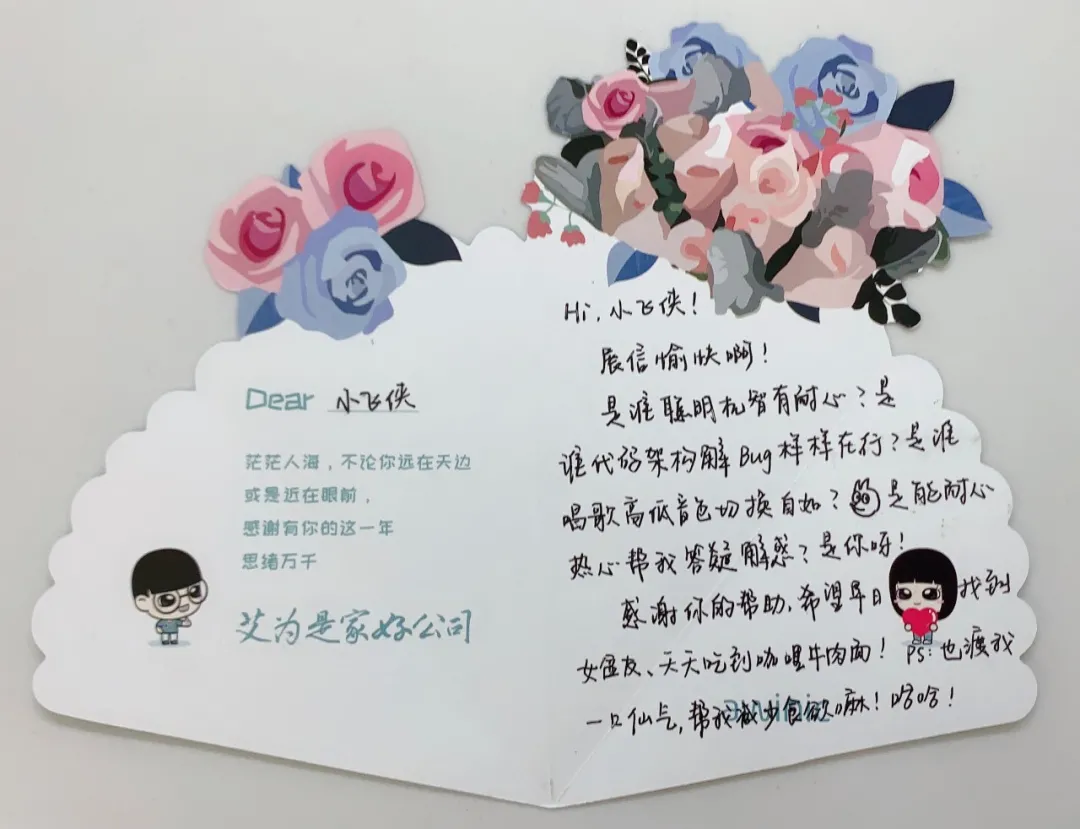 Dear 小飞侠
茫茫人海，不论你远在天边
或是近在眼前，
感谢有你的这一年
思绪万千
艾为是家好公司
Hi，小飞侠！
展信愉快啊！
是谁聪明机智有耐心？是
谁代码架构解Bug样样在行？是谁
唱歌高低音色切换自如？是能耐心
热心帮我答疑解惑？是你呀！
感谢你的帮助，希望早日找到
女盆友、天天吃到咖喱牛肉面！PS：也渡我
一口仙气，帮我减少食欲嘛！哈哈！
awinic